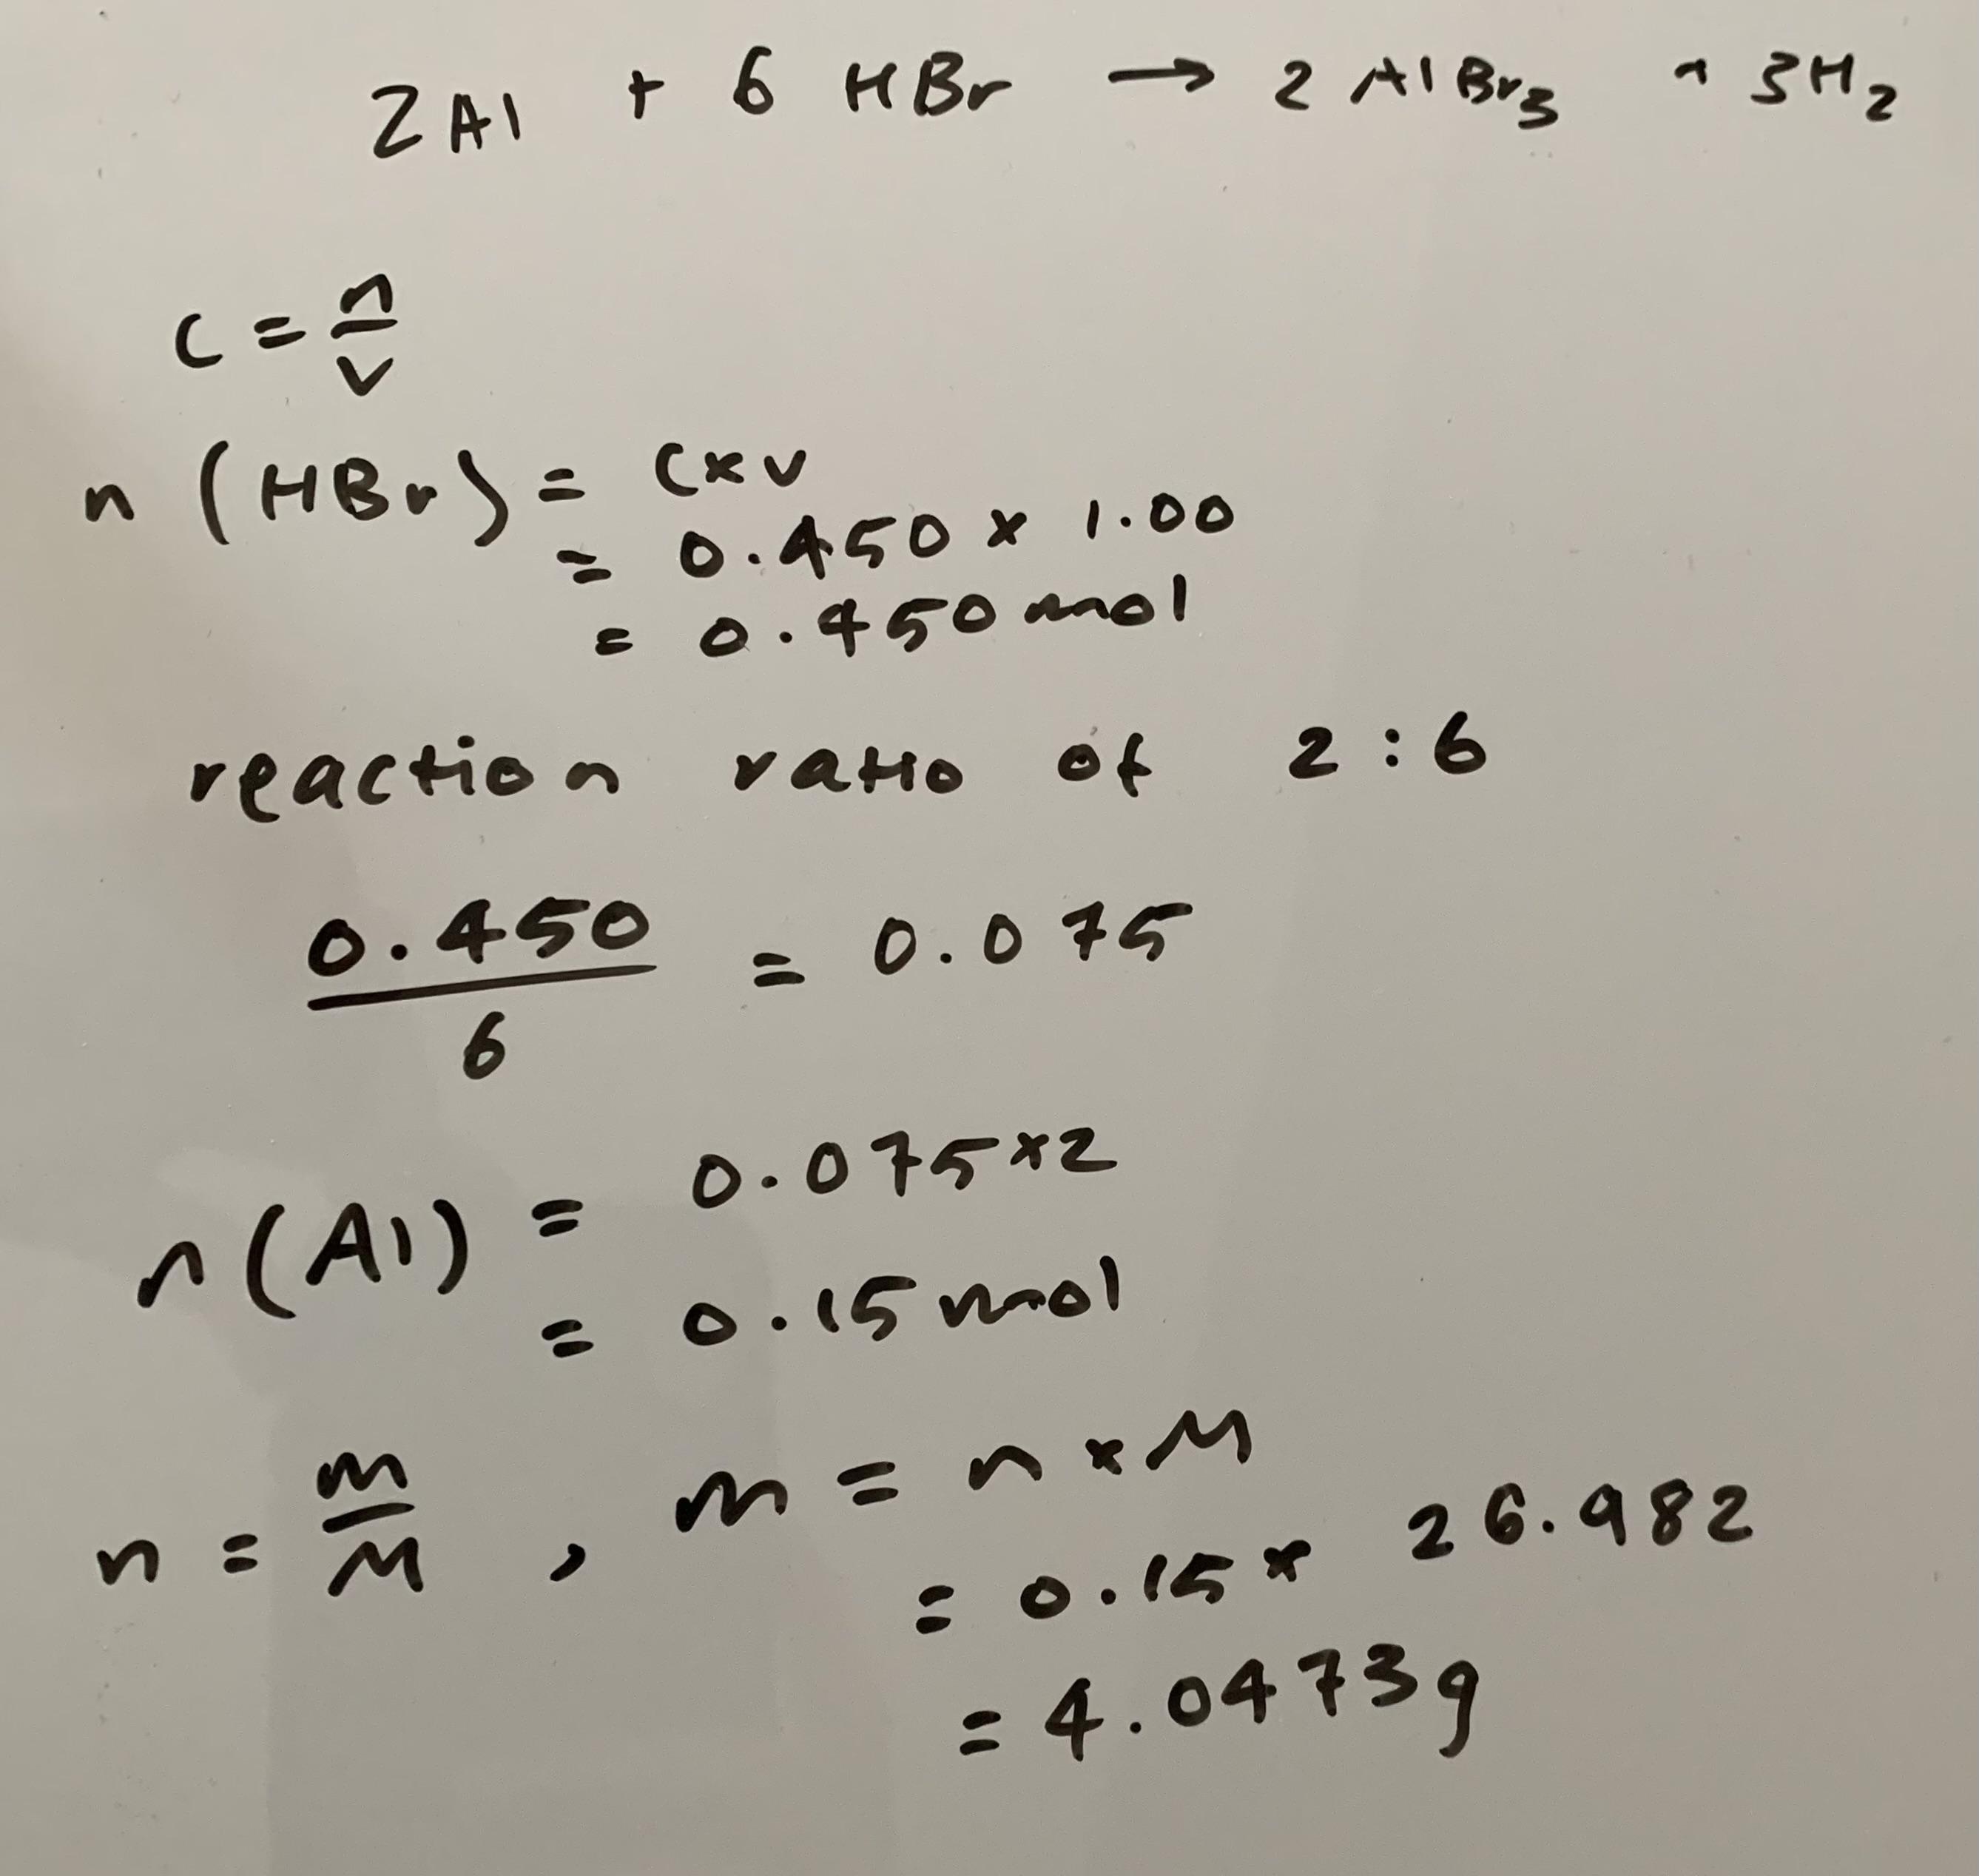 2Al + 6 HBr → 2 AlBr₃ + 3H₂
c = n/v
n (HBr) = c×v
= 0.450 × 1.00
= 0.450 mol
reaction ratio of 2:6
0.450/6 = 0.075
n(Al) = 0.075×2
= 0.15 mol
n = m/M , m = n × M
= 0.15 × 26.982
= 4.0473g